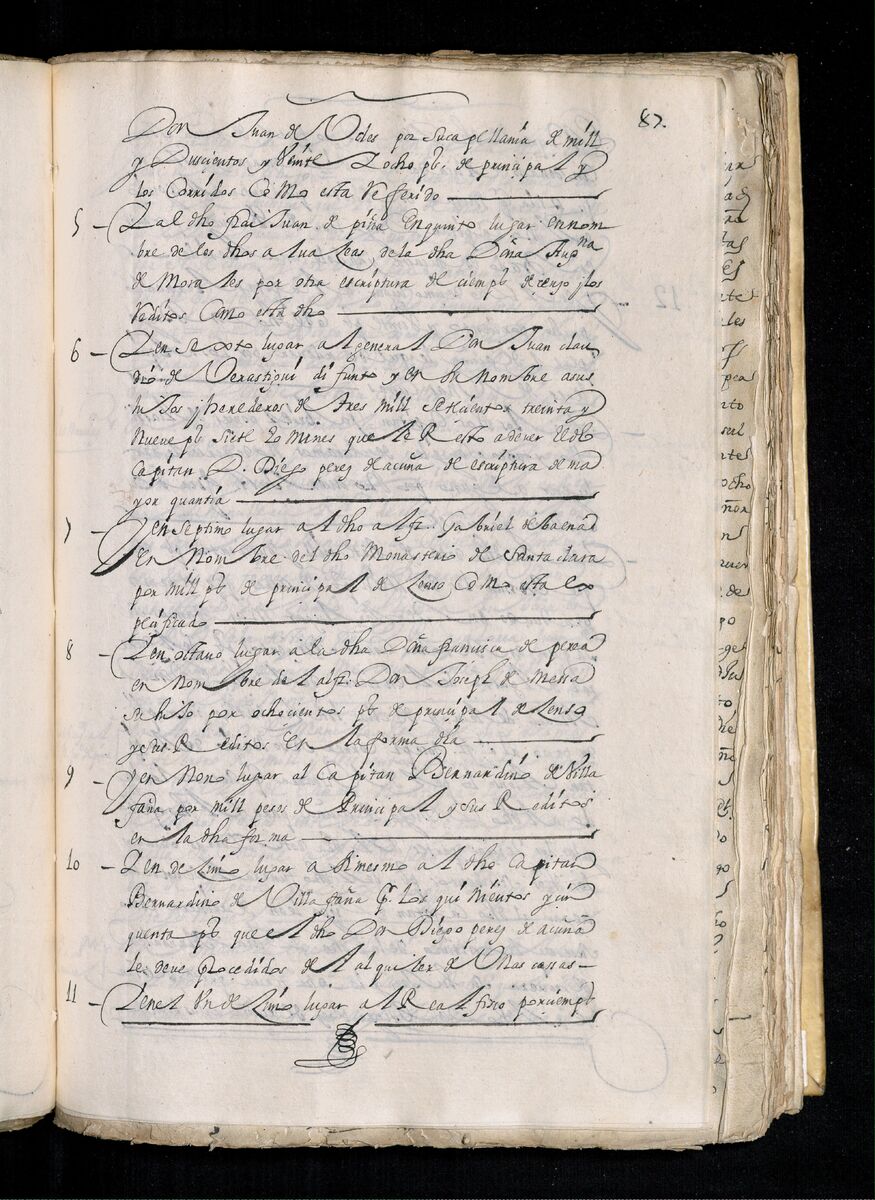 87.
Don Juan de Vcles por su capellania de mill
y Duscientos y Veinte y ocho ps. de principal y
los Corridos Como esta Referido
5 – Y al dho frai Juan de piña En quinto lugar en nom
bre de los dhos a lua seas de la dha Doña Augna
de Morales por otra escriptura de cien ps de censo y los
Reditos Como esta dho
6 – Y en Sexto lugar al general Don Juan clau
dio de Verastigui difunto y en Su nombre a sus
hijos y herederos de Tres mill setecientos treinta y
Nueve ps siete tomines que le Resto a dever el dho
Capitan D. Diego perez de acuña de escriptura de ma
yor quantia
7 – Y en septimo lugar al dho alfz. Gabriel de baena
En Nombre del dho Monasterio de Santa clara
por mill ps de principal de Senso Como esta ex
plificado
8 – Y en octavo lugar a la dha Doña francisca de perea
en Nombre del alfz. Don Joseph de Mesa
su hijo por ochocientos ps de principal de Senso
y sus Reditos En la forma dha
9 – Y en Nono lugar al Capitan Bernardino de Villa
faña por mill pesos de Principal y sus Reditos
en la dha forma
10 – Y en desimo lugar asimesmo al dho Capitan
Bernardino de Villafaña Por los quinientos y cin
quenta ps que el dho Don Diego perez de acuña
le deve procedidos del alquiler de Vnas casas –
11 – Y en el Vndesimo lugar al Real fisco por cien ps